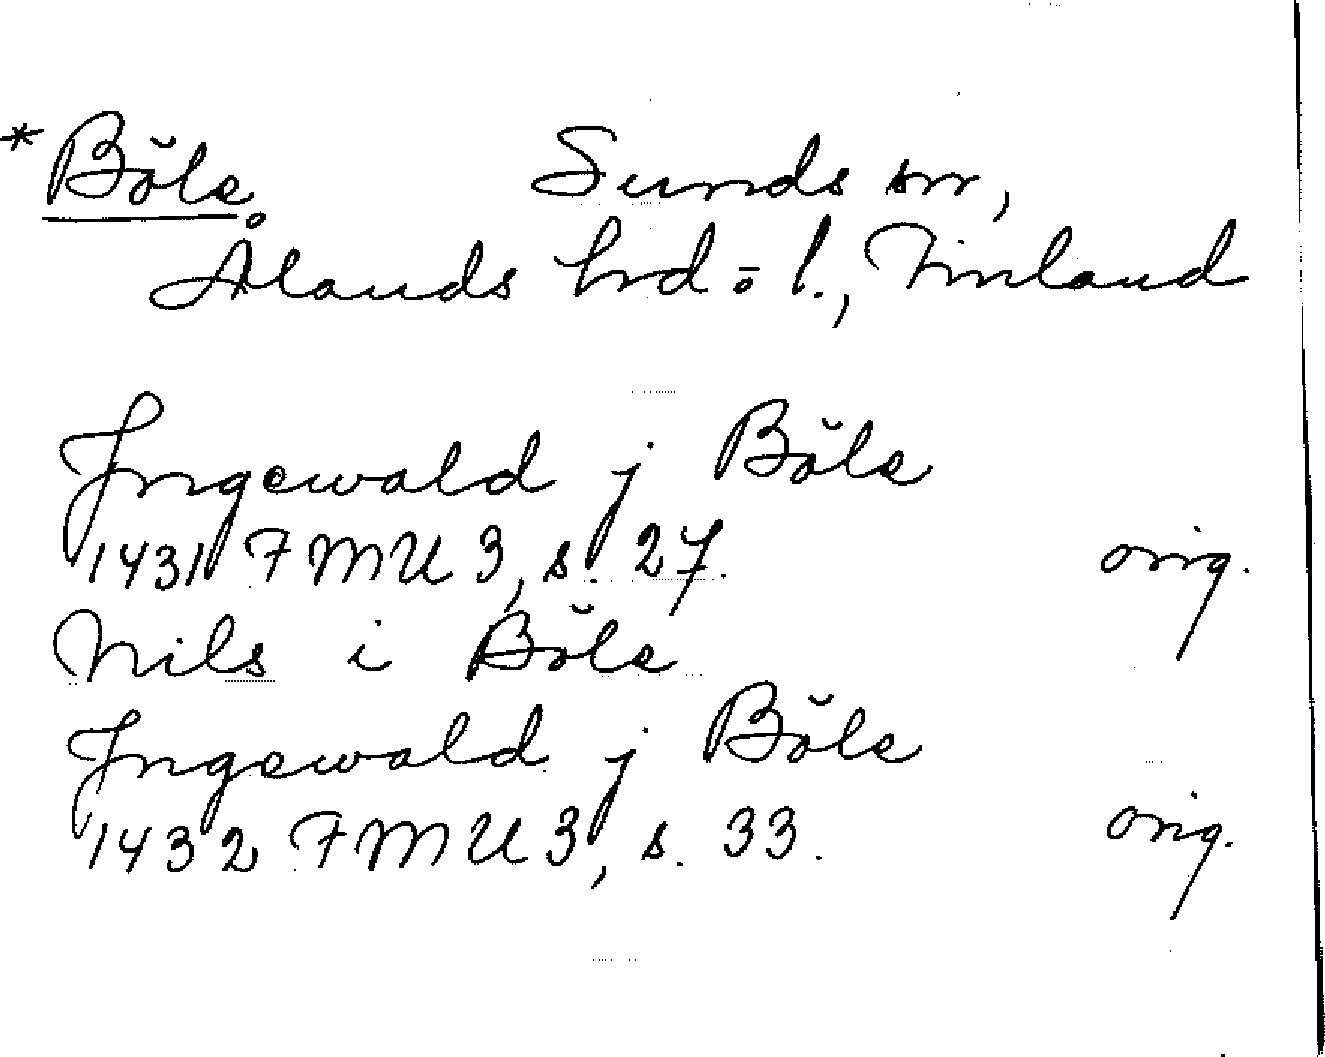 *Böle Sunds sn,
Ålands hd o l., Finland
Jngewald j Böle
1431 FMU 3, s. 27. orig.
Nils i Böle
Jngewald j Böle
1432 FMU 3, s. 33. orig.